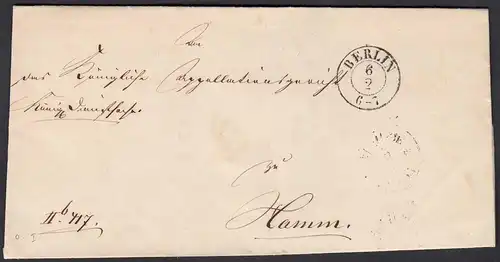 An
das Königliche Appellationsgericht
Königl. Dienstsache.
zu
Hamm.
IIb 417.
BERLIN
6
2
6-7